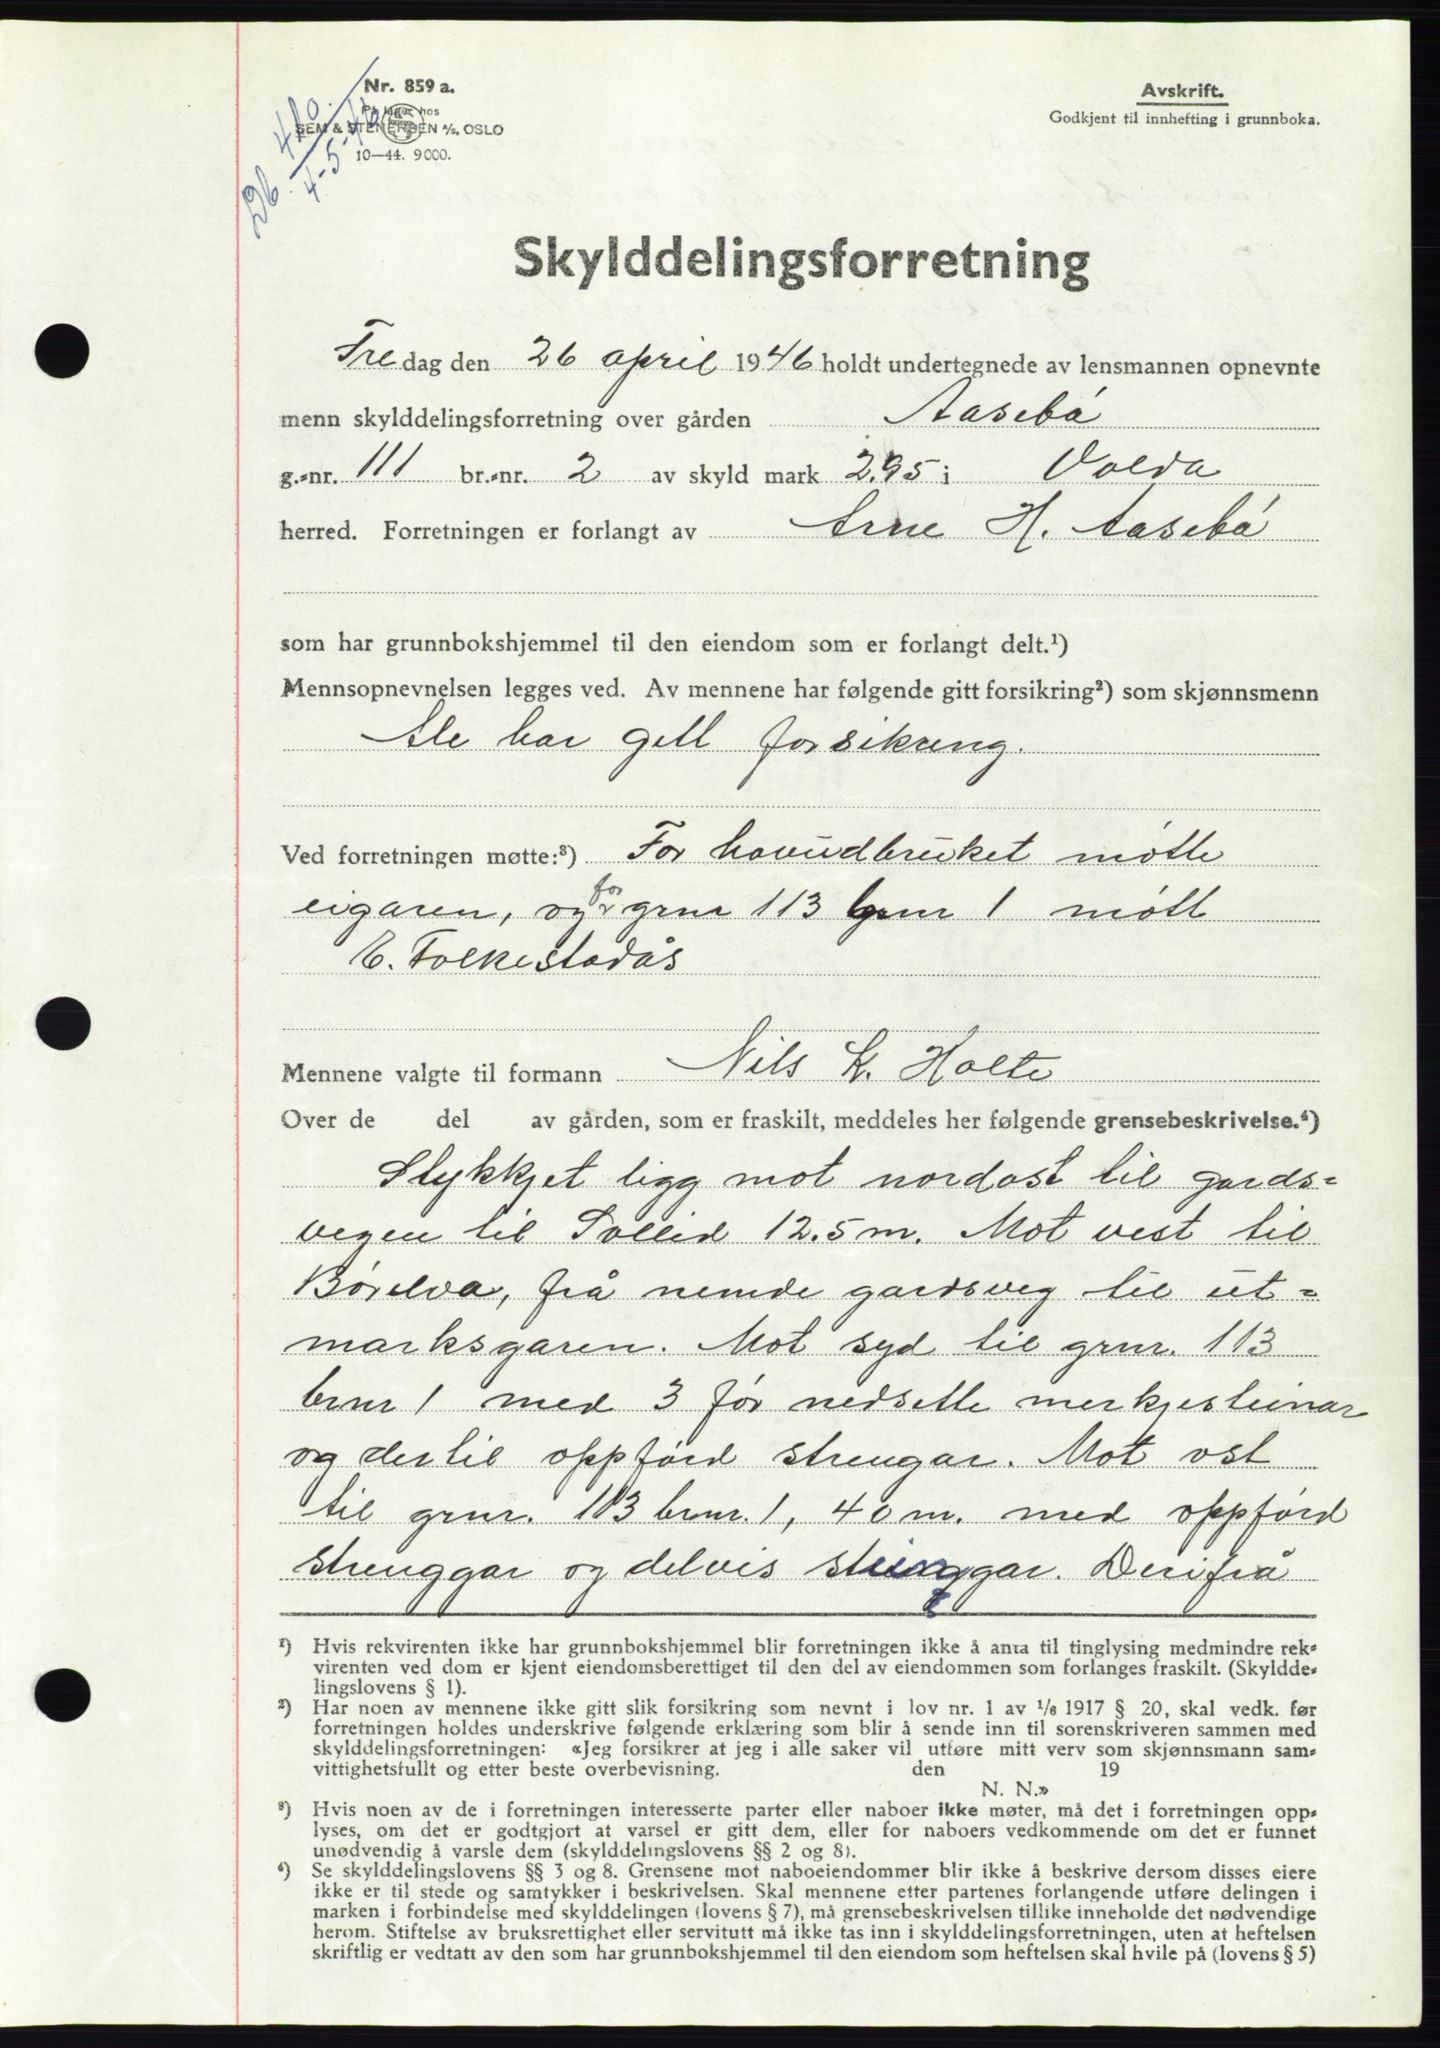 Nr. 859 a.
På lager hos
SEM & STENERSEN A/S, OSLO
10—44. 9000.
Db. 480.
4-5-46
Avskrift.
Godkjent til innhefting i grunnboka.
Skylddelingsforretning
Fredag den 26 april 1946 holdt undertegnede av lensmannen opnevnte
menn skylddelingsforretning over gården Aasebö
g.=nr. 111 br.=nr. 2 av skyld mark 2.95 i Volda
herred. Forretningen er forlangt av Arne H. Aasebö
som har grunnbokshjemmel til den eiendom som er forlangt delt.¹)
Mennsopnevnelsen legges ved. Av mennene har følgende gitt forsikring²) som skjønnsmenn
Ale har gitt forsikring.
Ved forretningen møtte:³) For hovudbruket mötte
eigaren, og for grnr 113 brnr 1 mött
E. Folkestadås
Mennene valgte til formann Nils K. Holte
Over de del av gården, som er fraskilt, meddeles her følgende grensebeskrivelse.⁴)
Stykkjet ligg mot nordost til gards=
vegen til Sollid 12.5 m. Mot vest til
Börelva, frå nemde gardsveg til ut=
marksgaren. Mot syd til grnr. 113
brnr 1 med 3 för nedsette merkjesteinar
og dertil oppförd strengar. Mot ost
til grnr. 113 brnr. 1, 40 m. med oppförd
strenggar og delvis steinggar. Derifrå
¹) Hvis rekvirenten ikke har grunnbokshjemmel blir forretningen ikke å anta til tinglysing medmindre rek=
virenten ved dom er kjent eiendomsberettiget til den del av eiendommen som forlanges fraskilt. (Skyldde=
lingslovens § 1).
²) Har noen av mennene ikke gitt slik forsikring som nevnt i lov nr. 1 av 1/6 1917 § 20, skal vedk. før
forretningen holdes underskrive følgende erklæring som blir å sende inn til sorenskriveren sammen med
skylddelingsforretningen: «Jeg forsikrer at jeg i alle saker vil utføre mitt verv som skjønnsmann sam=
vittighetsfullt og etter beste overbevisning. den 19
N. N.»
³) Hvis noen av de i forretningen interesserte parter eller naboer ikke møter, må det i forretningen opp=
lyses, om det er godtgjort at varsel er gitt dem, eller for naboers vedkommende om det er funnet
unødvendig å varsle dem (skylddelingslovens §§ 2 og 8).
⁴) Se skylddelingslovens §§ 3 og 8. Grensene mot naboeiendommer blir ikke å beskrive dersom disses eiere
ikke er til stede og samtykker i beskrivelsen. Skal mennene etter partenes forlangende utføre delingen i
marken i forbindelse med skylddelingen (lovens § 7), må grensebeskrivelsen tillike inneholde det nødvendige
herom. Stiftelse av bruksrettighet eller servitutt må ikke tas inn i skylddelingsforretningen, uten at heftelsen
skriftlig er vedtatt av den som har grunnbokshjemmel til den eiendom som heftelsen skal hvile på (lovens § 5)